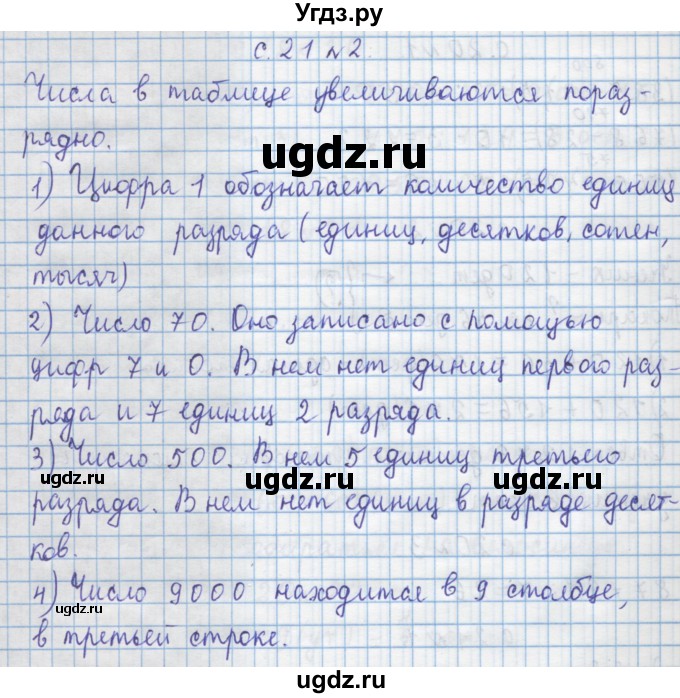 Угдз.ру
с. 21 №2.
Числа в таблице увеличиваются пораз-
рядно.
ugdz.ru
1) Цифра 1 обозначает количество единиц
данного разряда (единиц, десятков, сотен,
тысяч)
ugdz.ru
2) Число 70. Оно записано с помощью
цифр 7 и 0. В нем нет единиц первого раз-
ряда и 7 единиц 2 разряда.
3) Число 500. В нем 5 единиц третьего
ugdz.ru ugdz.ru ugdz.ru
разряда. В нем нет единиц в разряде десят-
ков.
4) Число 9000 находится в 9 столбце,
ugdz.ru
в третьей строке.
ugdz.ru
Угдз.ру